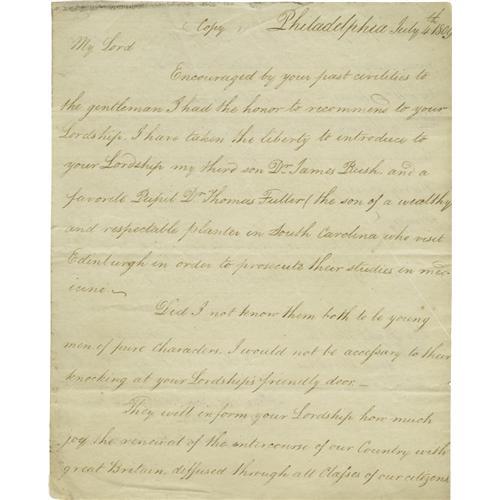 (Copy) Philadelphia July 4th 1809
My Lord
Encouraged by your past civilities to
the gentleman I had the honor to recommend to your
Lordship. I have taken the liberty to introduce to
your Lordship my third son Dr. James Rush and a
favorite Pupil Dr Thomas Fuller (the son of a wealthy
and respectable planter in South Carolina who visit
Edinburgh in order to prosecute their studies in med-
icine. ~
Did I not know them both to be young
men of pure characters, I would not be accessary to their
knocking at your Lordship's friendly door. —
They will inform your Lordship how much
joy the renewal of the intercourse of our Country with
great Britain, diffused through all Classes of our citizens